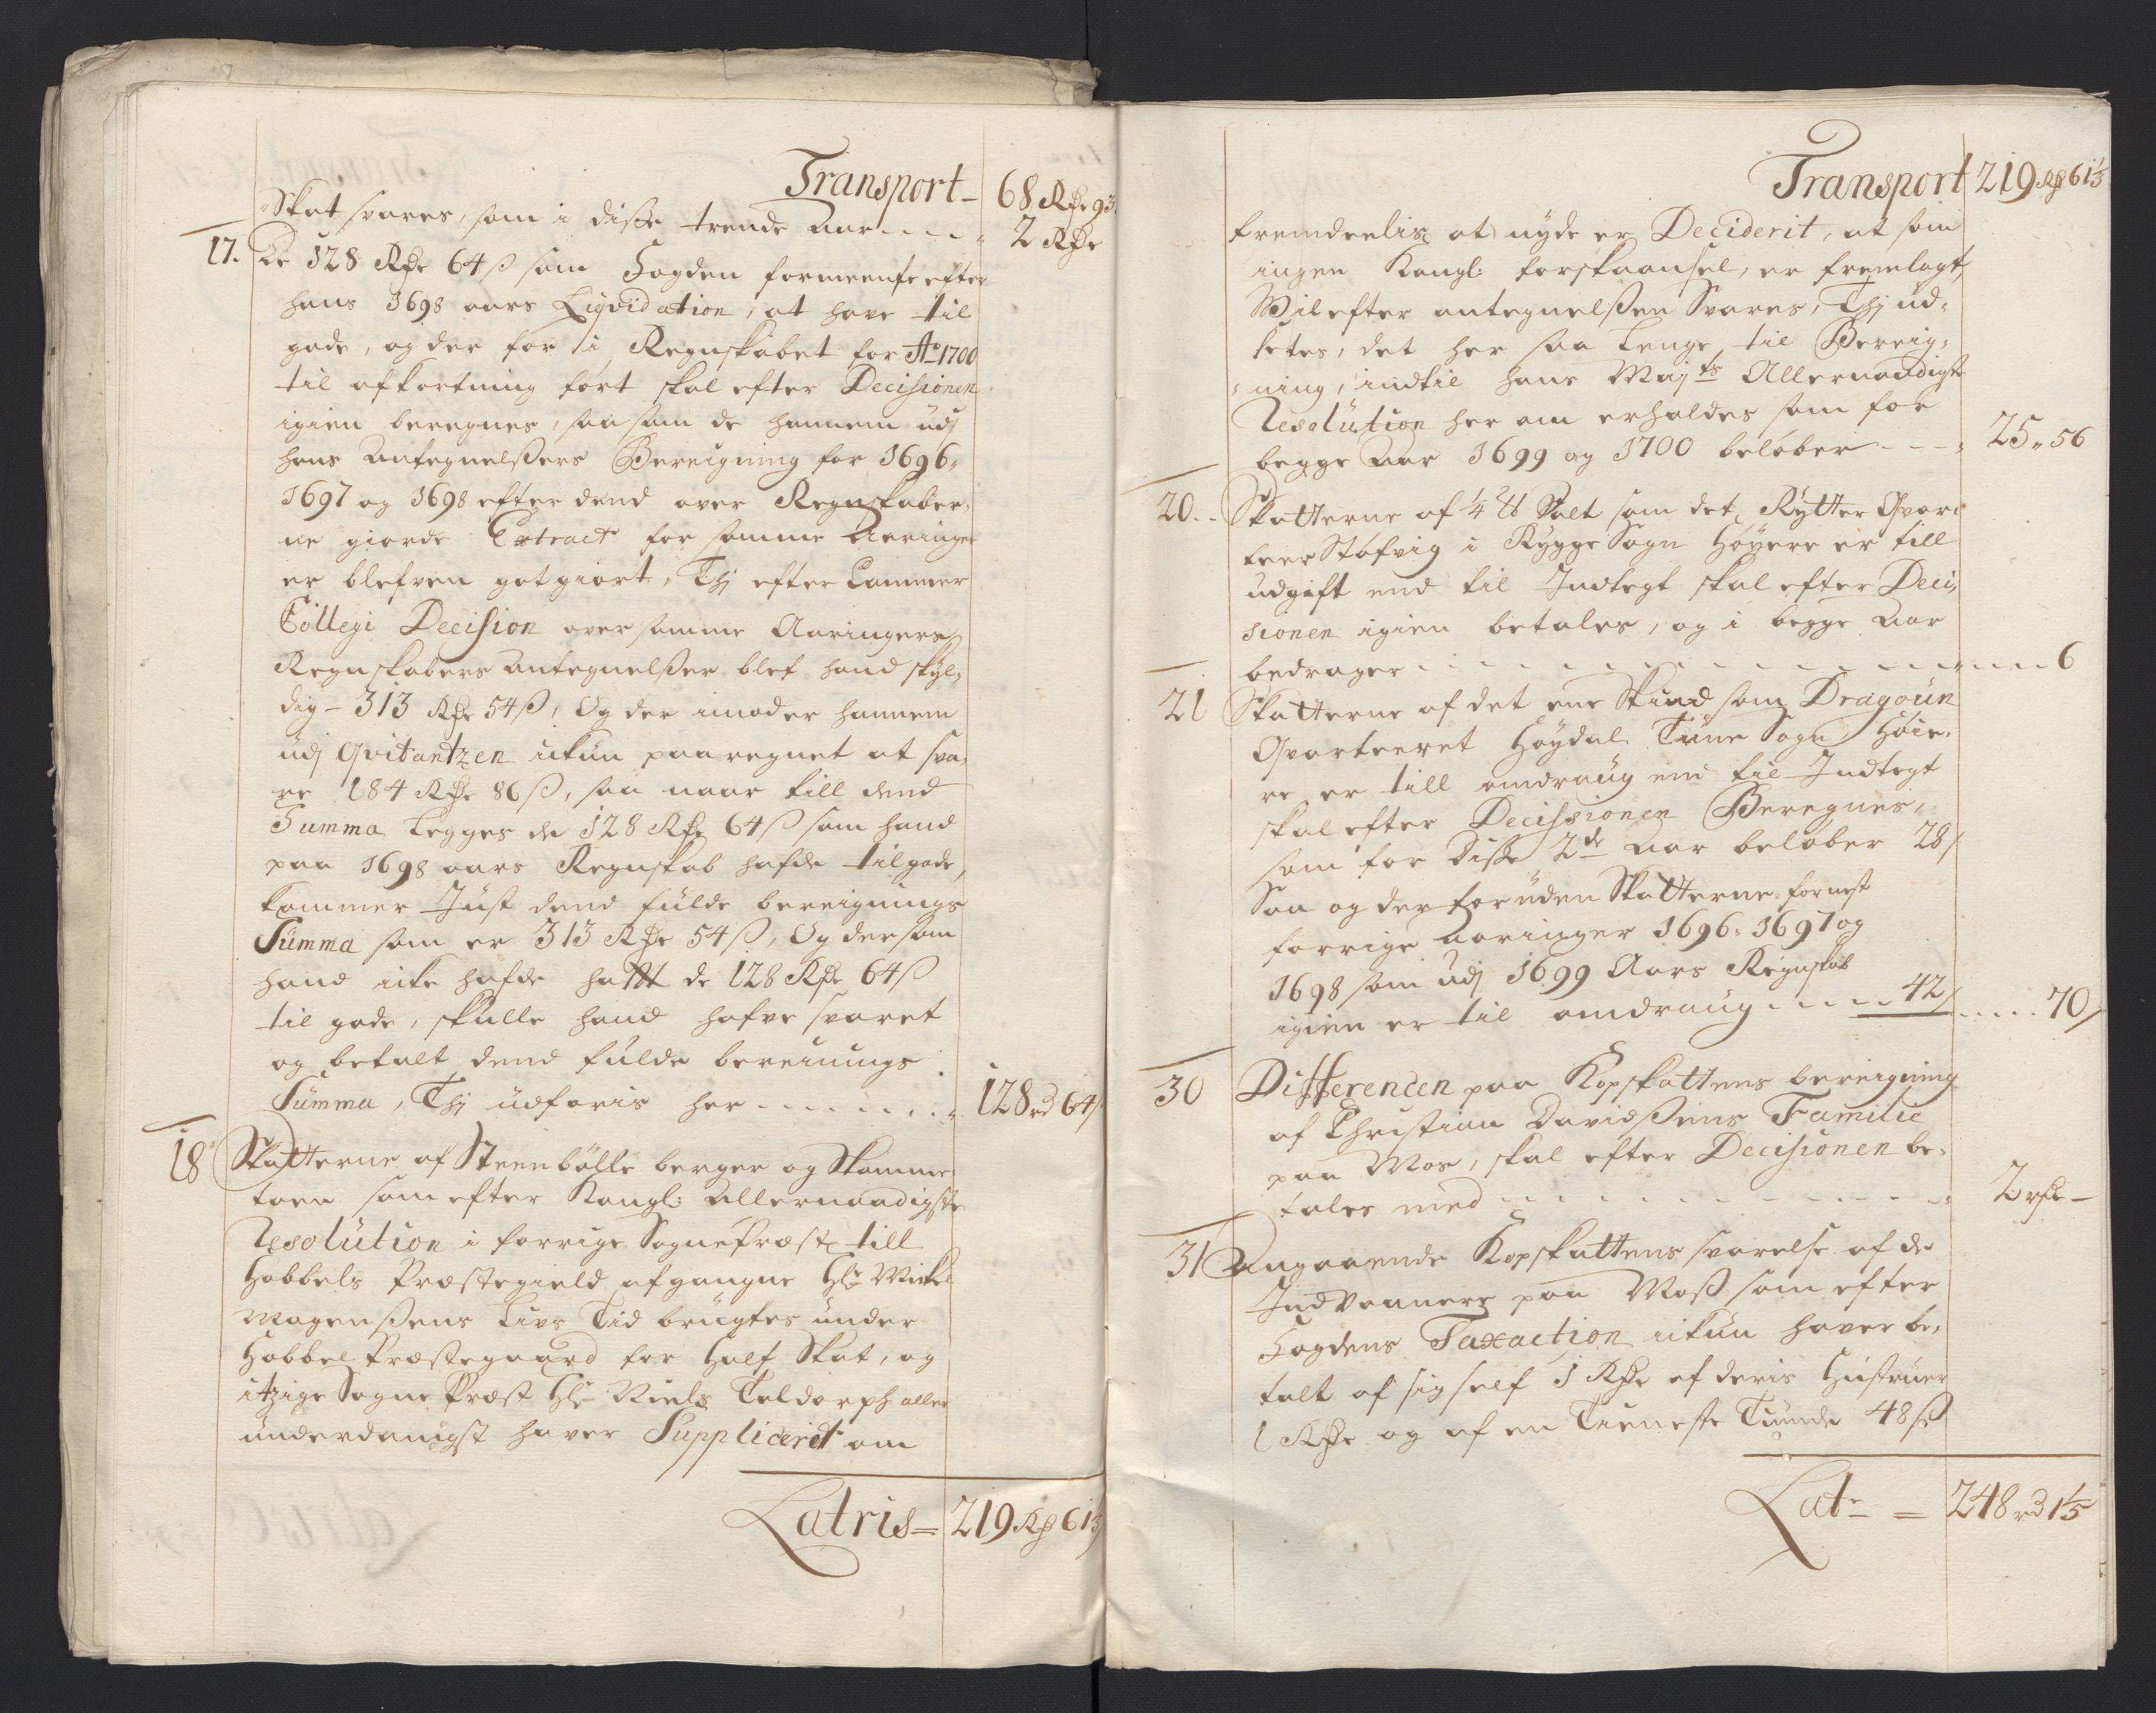 Transport – 68 Rdr 93
Skat svares, som i disse trende Aar - - - - „ 2 Rdr
17. De 128 Rdr 64 ß som Fogden formeente efter
hans 1698 aars Liqvidation, at have til
gode, og der for i Regnskabet for Ao 1700
til afkortning ført skal efter Decisionen
igien beregnes, saa som de hannem udj
hans Antegnelßers Bereigning for 1696,
1697 og 1698 efter dend over Regnskaber,
ne giorde Extract for samme Aaringer
er blefven got giort, Thj efter Cammer
Collegi Decision over samme Aaringers
Regnskabers Antegnelßer blef hand skyl,
dig – 313 Rdr 54 ß, Og der imoder hannem
udj Qvitantzen ickun paaregnet at sva,
re 184 Rdr 86 ß, saa naar till dend
Summa Legges de 128 Rdr 64 ß som hand
paa 1698 aars Regnskab hafde tilgode,
kommer Just dend fulde bereignings
Summa som er 313 Rdr 54 ß, Og dersom
hand icke hafde hatt de 128 Rdr 64 ß
til gode, skulle hand hafve svaret
og betalt dend fulde bereinings
Summa, Thj udføris her - - - - - - - „ 128 rd 64 ß
18 Skatterne af Steenbølle berger og Skamme
toen som efter Kongl: allernaadigste
Resolution i forrige Sognepræst till
Hobbels Præstegield afgangne Hr Mickel
Magenßens Livs Tid brugtes under
Hobbel Præstegaard for Half Skat, og
itzige Sogne Præst Hr Niels Toldorph aller
underdanigst haver Supplicerit om
Latris = 219 Rd 61⅕
Transport 219 Rd 61⅕
fremdeelis at nyde er Deciderit, at som
ingen Kongl: forskaansel, er fremlagt,
Wil efter antegnelßen Svares, Thj ud,
settes, det her saa Lenge til Bereig,
ning, indtil hans Mayts Allernaadigste
Resolution her om erholdes som for
begge Aar 1699 og 1700 beløber - - - „ 25 „ 56
20 - - Skatterne af ¼ ℔ Salt som det Rytter Qvar
teer Støfvig i Rygge Sogn Høyere er till
udgift end til Indtegt skal efter Deci,
sionen igien betales, og i begge Aar
bedrager - - - - - - - - - - - - - - - - 6
21 Skatterne af det ene Skind som Dragoun
Qvarteeret Høydal Tune Sogn Høie,
re er till omdraug end til Indtegt
skal efter Decissionen Beregnes,
som for Disse 2de Aar beløber 28 ß
Saa og der foruden Skatterne for nest
forrige Aaringer 1696: 1697 og
1698 som udj 1699 Aars Regnskab
igien er til omdraug - - - - - 42 ß - - - - - 70 ß
30 Differencen paa Kopskattens bereigning
af Christian Davidßens Familie
paa Mos, skal efter Decisionen be,
tales med - - - - - - - - - - - - - „ 2 rdr –
31 Angaaende Kopskattens svarelse af de
Indvaanere paa Moß som efter
Fogdens Taxaction ickun haver be,
talt af sig self 1 Rdr af deris Hustruer
1 Rdr og af en Tieneste Tiunde 48 ß
Lat – = 248 rd 1⅕